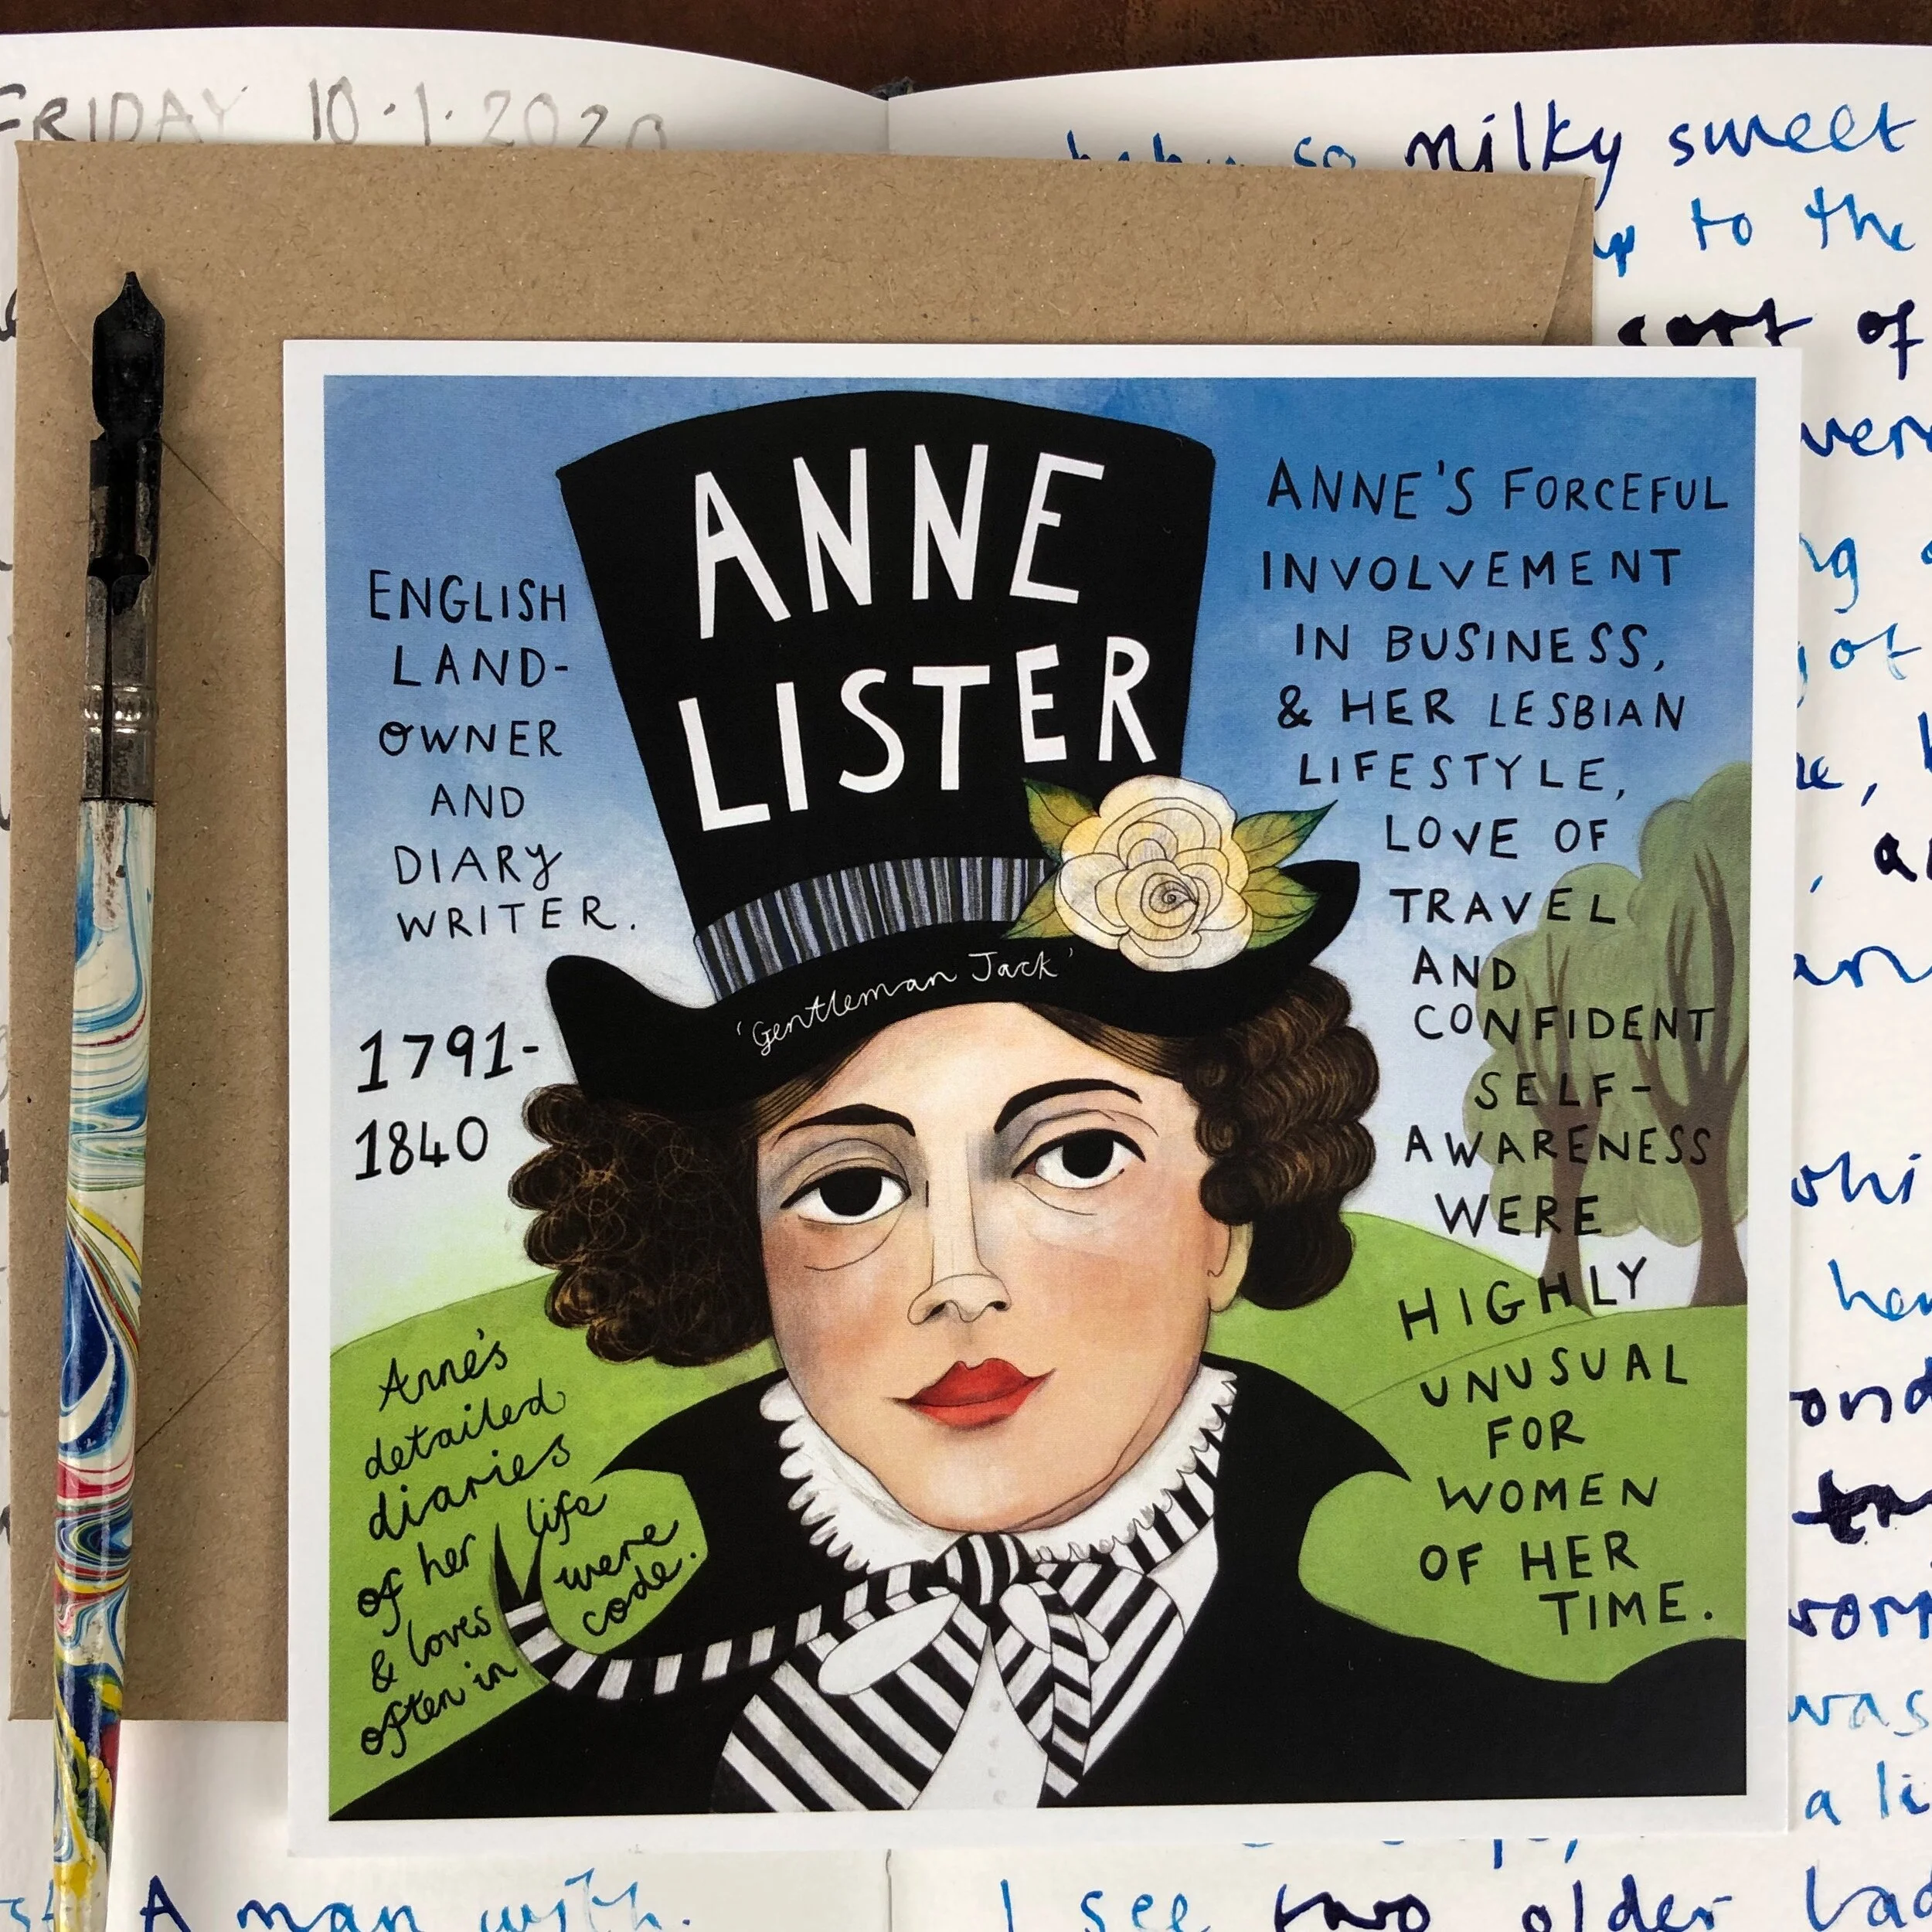 FRIDAY 10.1.2020
so milky sweet
to the
sort of
ANNE
LISTER
'Gentleman Jack'
ENGLISH
LAND-
OWNER
AND
DIARY
WRITER.
1791-
1840
Anne's
detailed
diaries
of her life
& loves were
often in code.
ANNE'S FORCEFUL
INVOLVEMENT
IN BUSINESS,
& HER LESBIAN
LIFESTYLE,
LOVE OF
TRAVEL
AND
CONFIDENT
SELF-
AWARENESS
WERE
HIGHLY
UNUSUAL
FOR
WOMEN
OF HER
TIME.
was
a li
A man with.
I see two older lad